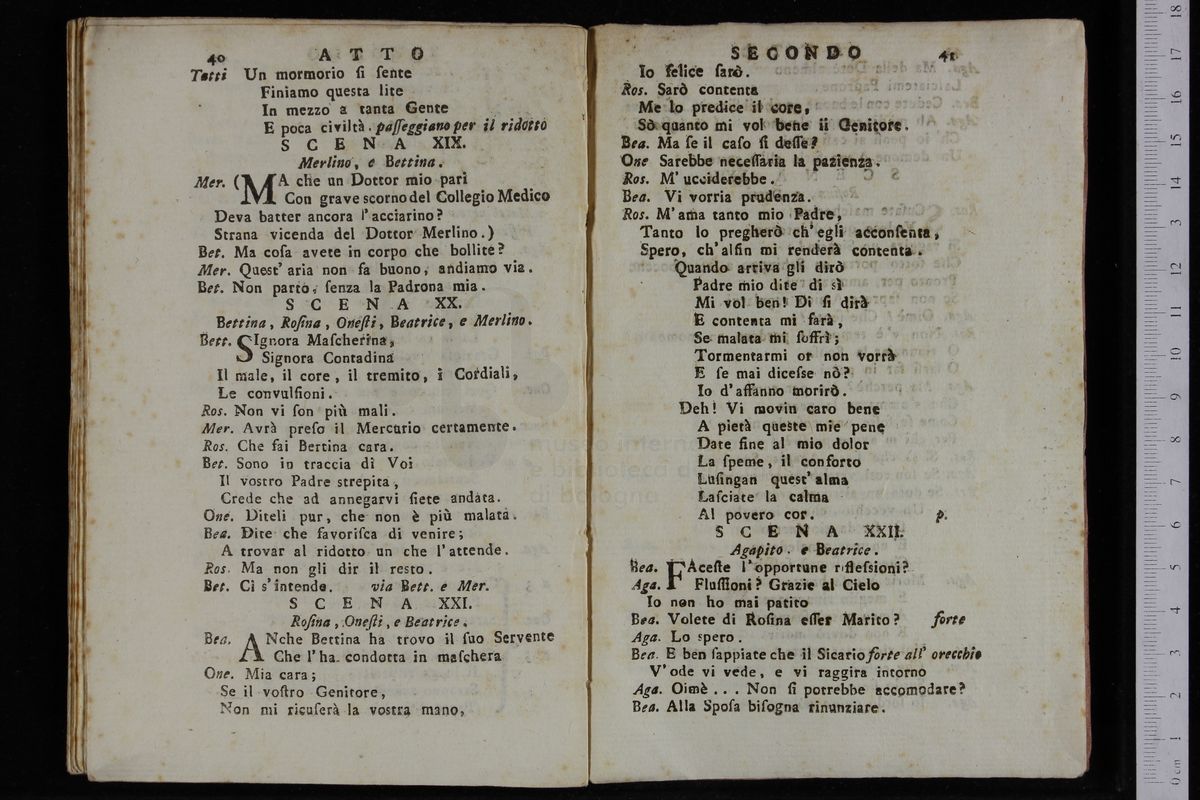 40 ATTO
Totti Un mormorio ſi ſente
Finiamo questa lite
In mezzo a tanta Gente
E poca civiltà. paſſeggiano per il ridotto
SCENA XIX.
Merlino, e Bettina.
Mer. (MA che un Dottor mio pari
Con grave scorno del Collegio Medico
Deva batter ancora l'acciarino?
Strana vicenda del Dottor Merlino.)
Bet. Ma coſa avete in corpo che bollite?
Mer. Quest' aria non fa buono, andiamo via.
Bet. Non parto, ſenza la Padrona mia.
SCENA XX.
Bettina, Roſina, Oneſti, Beatrice, e Merlino.
Bett. SIgnora Maſcherina,
Signora Contadina
Il male, il core, il tremito, i Cordiali,
Le convulſioni.
Ros. Non vi ſon più mali.
Mer. Avrà preſo il Mercurio certamente.
Ros. Che fai Bertina cara.
Bet. Sono in traccia di Voi
Il vostro Padre strepita,
Crede che ad annegarvi ſiete andata.
One. Diteli pur, che non è più malata.
Bea. Dite che favoriſca di venire;
A trovar al ridotto un che l'attende.
Ros. Ma non gli dir il resto.
Bet. Ci s'intende. via Bett. e Mer.
SCENA XXI.
Roſina, Oneſti, e Beatrice.
Bea. ANche Bettina ha trovo il ſuo Servente
Che l'ha condotta in maſchera
One. Mia cara;
Se il voſtro Genitore,
Non mi ricuſerà la vostra mano,
SECONDO 41
Io felice ſarò.
Ros. Sarò contenta
Me lo predice il core,
Sò quanto mi vol bene ii Genitore.
Bea. Ma ſe il caſo ſi deſſe?
One Sarebbe neceſſaria la pazienza.
Ros. M' ucciderebbe.
Bea. Vi vorria prudenza.
Ros. M'ama tanto mio Padre,
Tanto lo pregherò ch'egli acconſenta,
Spero, ch'alfin mi renderà contenta.
Quando arriva gli dirò
Padre mio dite di sì
Mi vol ben! Di ſi dirà
E contenta mi farà,
Se malata mi ſoffrì;
Tormentarmi or non vorrà
E ſe mai diceſse nò?
Io d'affanno morirò.
Deh! Vi movin caro bene
A pietà queste mie pene
Date fine al mio dolor
La ſpeme, il conforto
Luſingan quest' alma
Laſciate la calma
Al povero cor. p.
SCENA XXII.
Agapito. e Beatrice.
Bea. FAceſte l'opportune rifleſsioni?
Aga. Fluſſioni? Grazie al Cielo
Io non ho mai patito
Bea. Volete di Roſina eſſer Marito? forte
Aga. Lo spero.
Bea. E ben ſappiate che il Sicario forte all' orecchio
V'ode vi vede, e vi raggira intorno
Aga. Oimè . . . Non ſi potrebbe accomodare?
Bea. Alla Spoſa biſogna rinunziare.